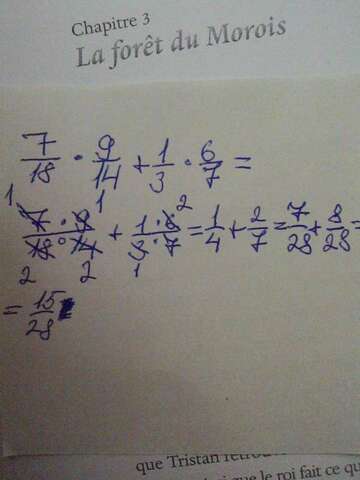 Chapitre 3
La forêt du Morois
7/18 · 9/14 + 1/3 · 6/7 =
7 · 9 / 18 · 14 + 1 · 6 / 3 · 7 = 1/4 + 2/7 = 7/28 + 8/28 =
= 15/28
que Tristan retrou
que le roi fait ce qu